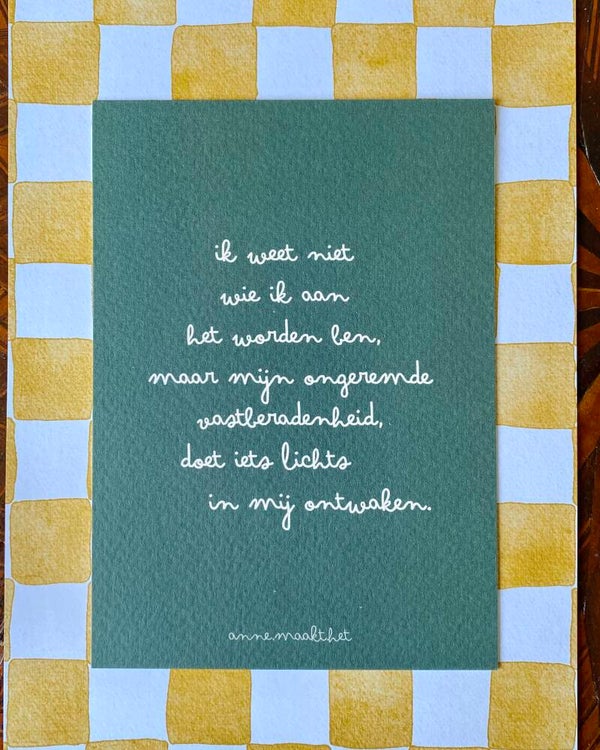 ik weet niet
wie ik aan
het worden ben,
maar mijn ongeremde
vastberadenheid,
doet iets lichts
in mij ontwaken.
anne.maakt.het